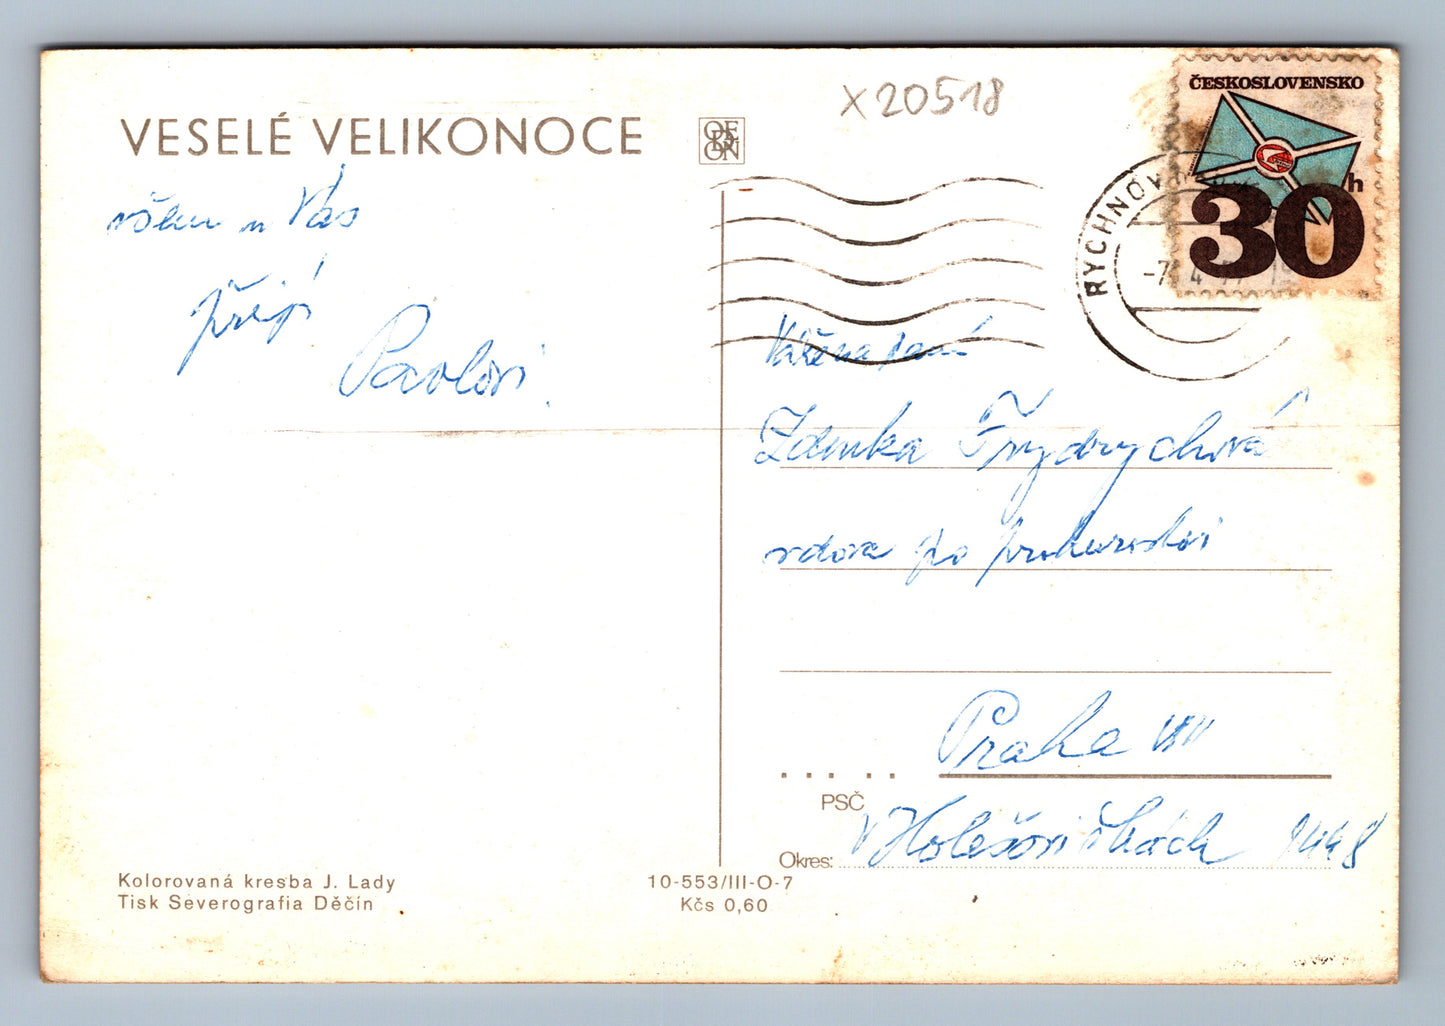 VESELÉ VELIKONOCE
ODEON
X 20518
ČESKOSLOVENSKO
30 h
RYCHNOV
-7. 4
všem u Vás
přejí
Pavlovi.
Vážená paní
Zdenka Frydrychová
vdova po prokuristovi
Praha VIII
PSČ
v Holešovičkách
Okres:
Kolorovaná kresba J. Lady
Tisk Severografia Děčín
10-553/III-O-7
Kčs 0,60